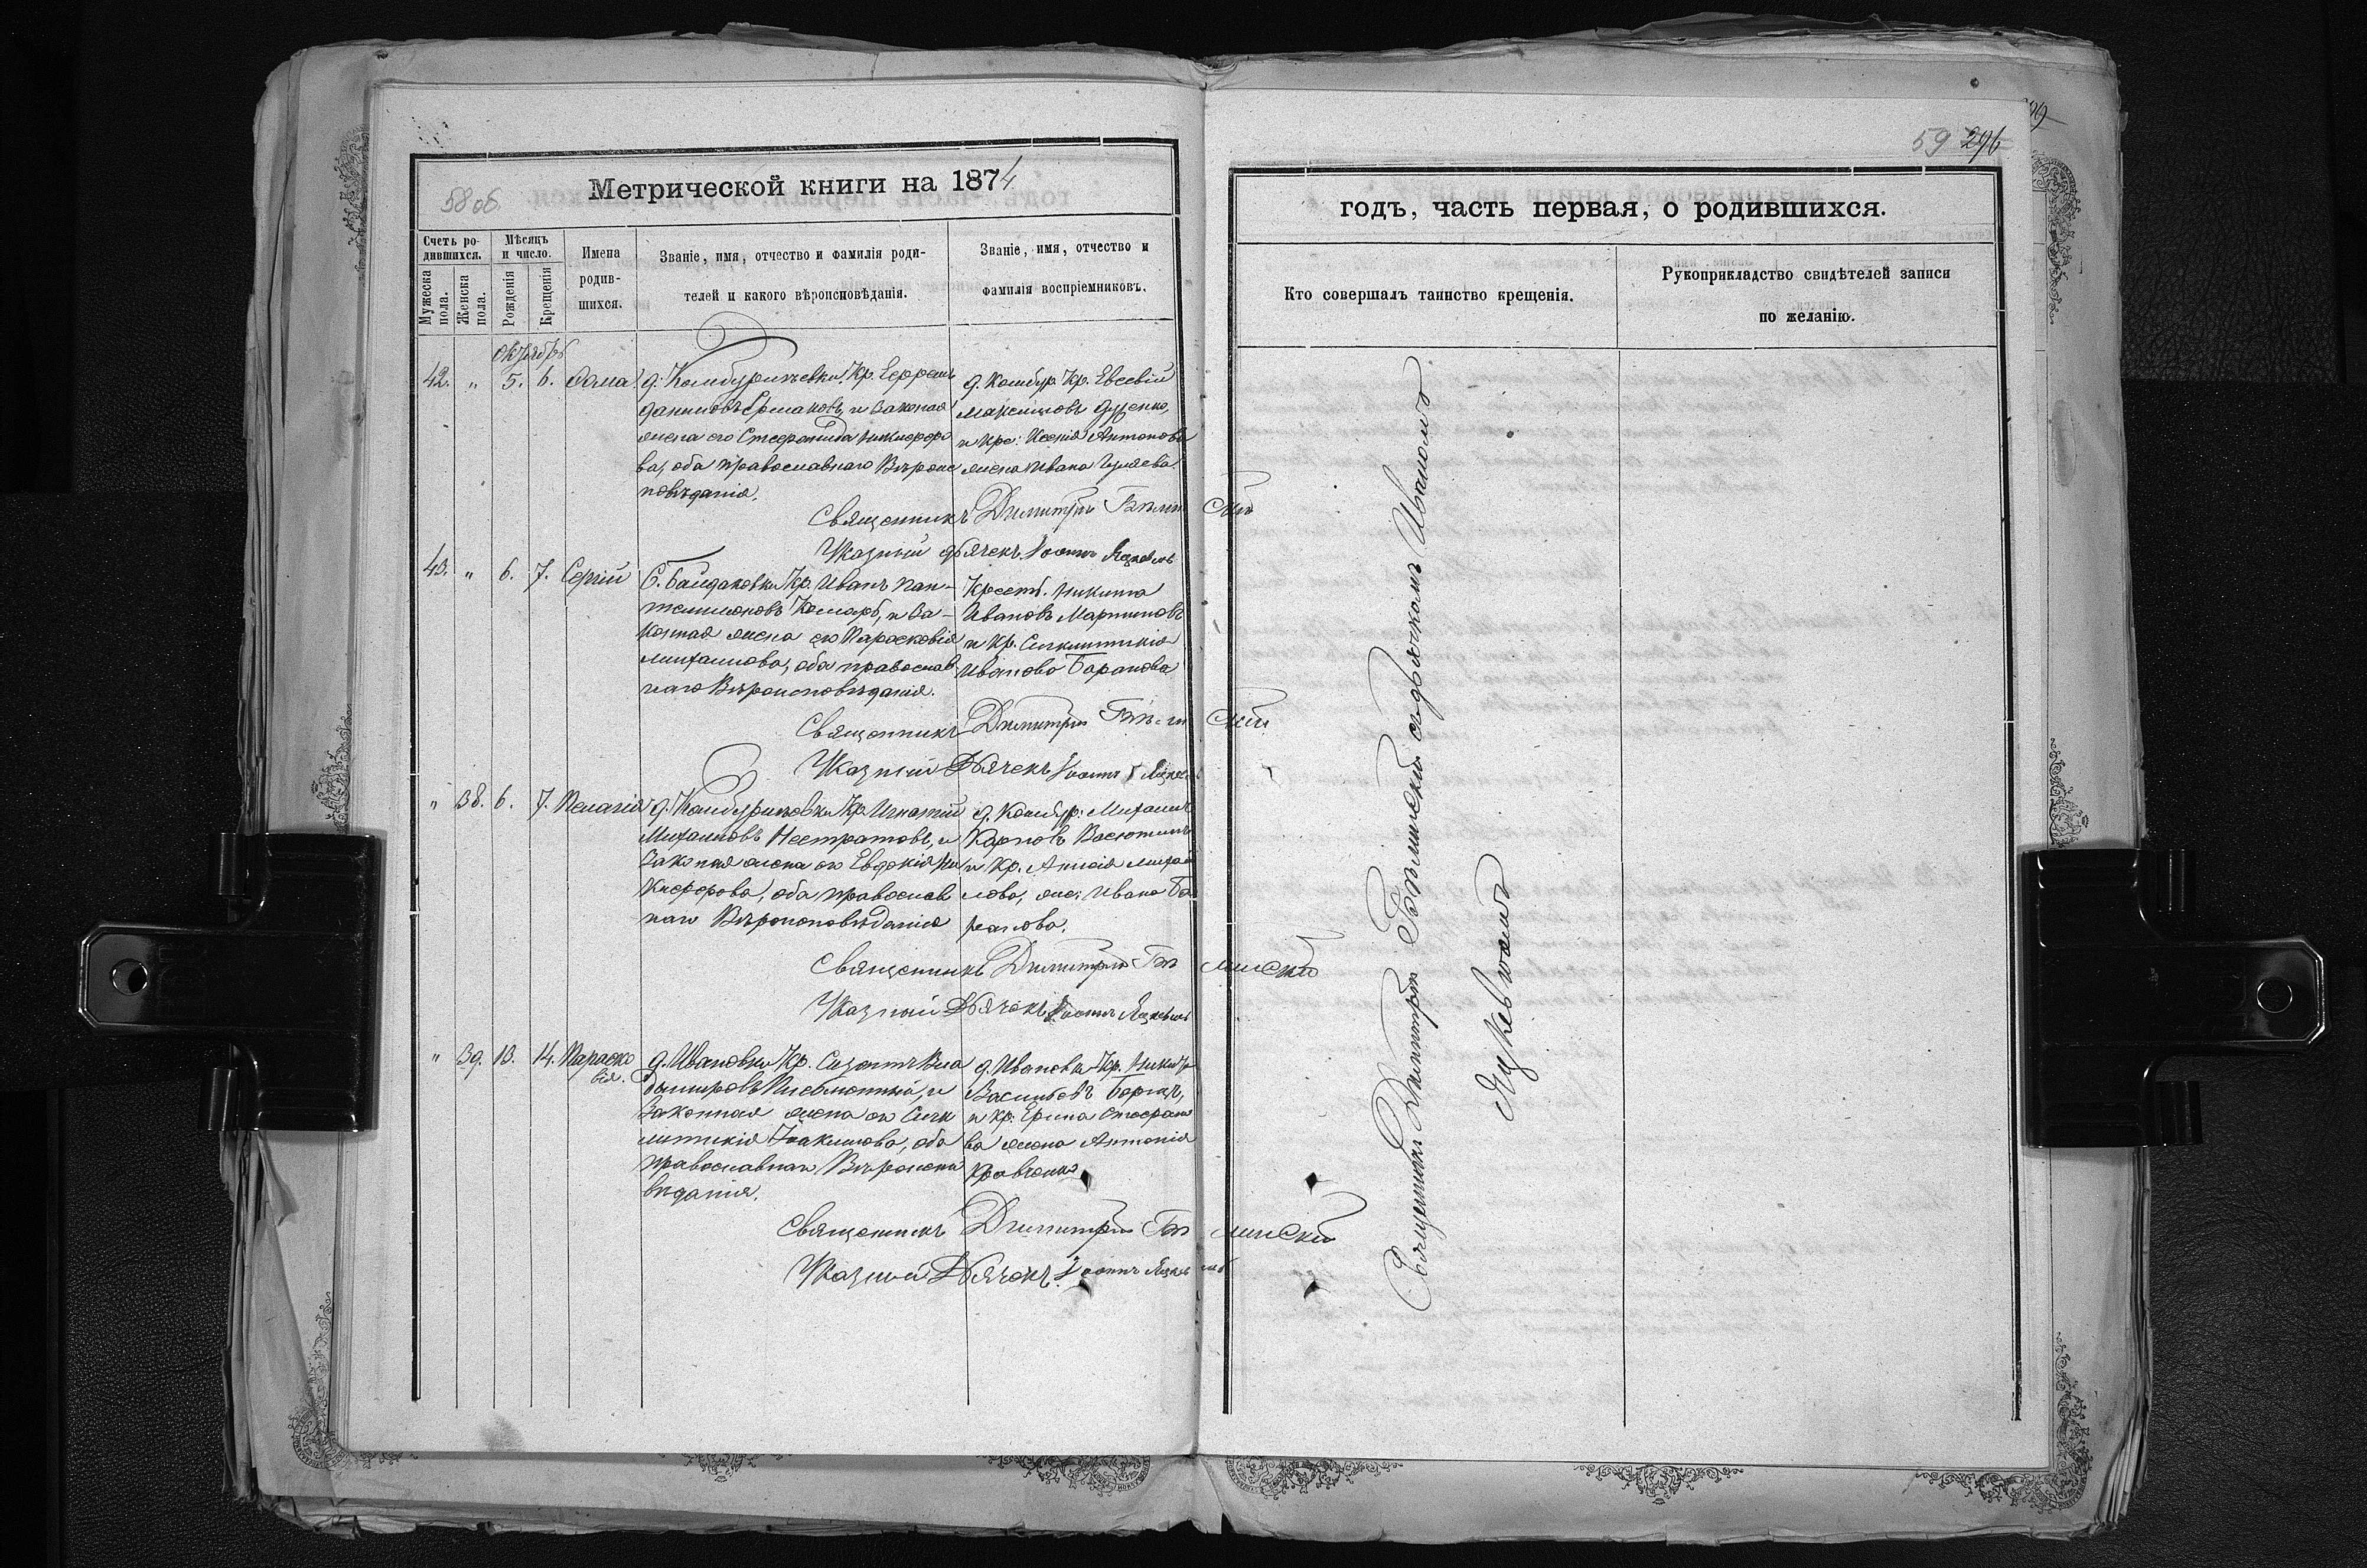 58 об.
Метрической книги на 1874
Счетъ ро-
дившихся.
Мѣсяцъ
и число.
Мужеска пола.
Женска пола.
Рожденія
Крещенія
Имена
родив-
шихся.
Званіе, имя, отчество и фамилія роди-
телей и какого вѣроисповѣданія.
Званіе, имя, отчество и
фамилія воспріемниковъ.
Октябрь
42. " 5. 6. Ѳома
д. Камбуриевки, Кр. Ефремъ
Даниловъ Ермаковъ, и законная
жена его Стефанида Никифоро
ва, оба православнаго Вѣроис
повѣданія.
д. Камбур. Кр. Евсевій
Максимовъ
и кре: Ксенія Антонова
жена Ивана
Священникъ Димитрій
Указный дьячекъ Іоаннъ Яцкевичъ
43. " 6. 7. Сергій
С. Байдаковки Кр. Иванъ Пан-
телимоновъ Комаръ, и за-
конная жена его Параскевія
Михаилова, оба православ
наго Вѣроисповѣданія.
Крест. Никита
Ивановъ Мартиновъ
и Кр. Сингклитикія
Иванова Баранова
Священникъ Димитрій
Указный Дьячекъ Іоаннъ Яцкевичъ
" 38. 6. 7. Пелагія
д. Камбуриевки Кр. Игнатій
Михаиловъ Нестратовъ, и
законная жена его Евдокія Ни
кифорова, оба православ
наго Вѣроисповѣданія
д. Камбур: Михаилъ
Карповъ
и Кр. Анисія Михаи
лова, жен: Ивана Ба
ранова.
Священникъ Димитрій
Указный Дьячекъ Іоаннъ Яцкевичъ
" 39. 13. 14. Параске
вія.
д. Ивановки Кр. Вла
диміровъ Письменный, и
законная жена его Синк
литикія Іоакимова, оба
православнаго Вѣроиспо
вѣданія.
д. Ивановки Кр. Никита
Васильевъ
и кр: Ерина Стефано
ва жена Антонія
Кравченко
Священникъ Димитрій
Указный Дьячекъ Іоаннъ Яцкевичъ
59 296
годъ, часть первая, о родившихся.
Кто совершалъ таинство крещенія.
Рукоприкладство свидѣтелей записи
по желанію.
Священникъ Димитрій съ дьячкомъ Иваномъ
Яцкевичомъ